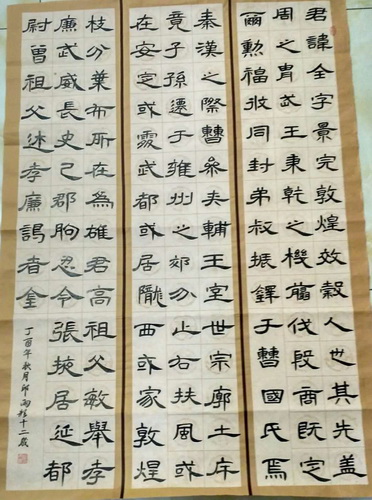 君諱全字景完敦煌效穀人也其先蓋
周之胄武王秉乾之機翦伐殷商既定
爾勳福攸同封弟叔振鐸于曹國氏焉
秦漢之際曹參夾輔王室世宗廓土斥
竟子孫遷于雍州之郊分止右扶風或
在安定或處武都或居隴西或家敦煌
枝分葉布所在為雄君高祖父敏舉孝
廉武威長史巴郡朐忍令張掖居延都
尉曾祖父述孝廉謁者金
丁酉年秋月邱雨十二歲